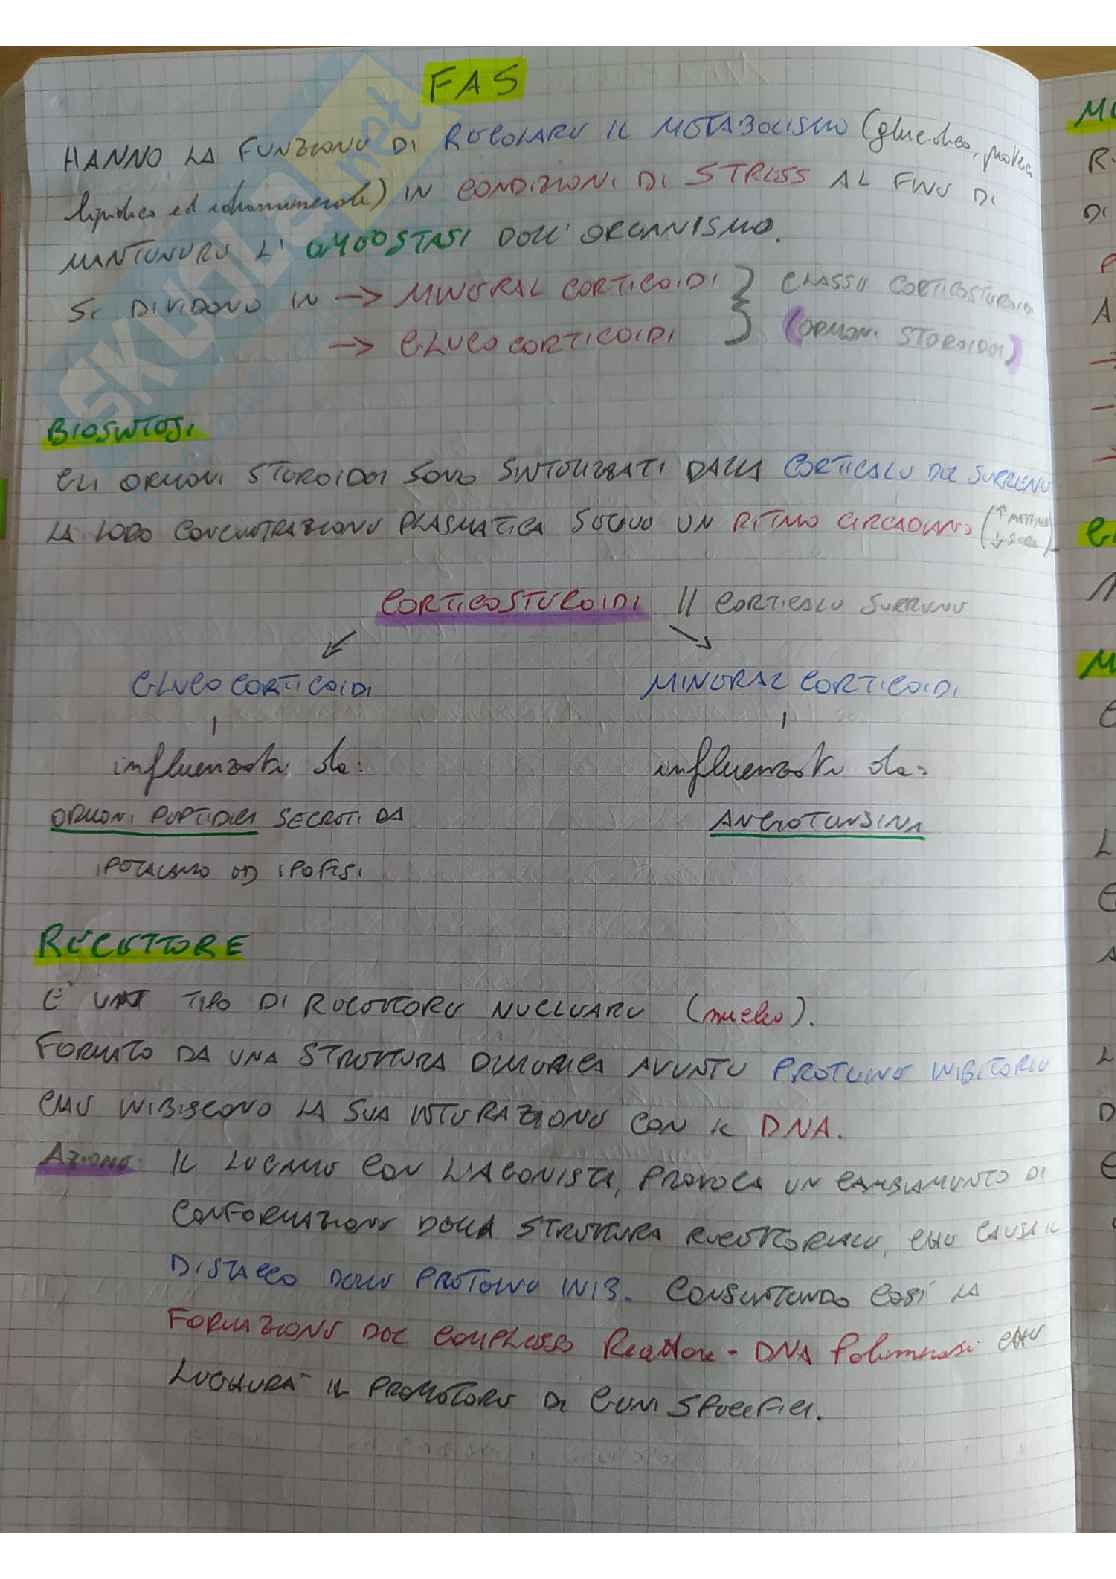 FAS
HANNO LA FUNZIONE DI REGOLARE IL METABOLISMO (glucidico, proteico
lipidico ed idrominerale) IN CONDIZIONI DI STRESS AL FINE DI
MANTENERE L' OMEOSTASI DELL'ORGANISMO.
SI DIVIDONO IN → MINERAL CORTICOIDI } CLASSE CORTICOSTEROIDI
→ GLUCO CORTICOIDI (ORMONI STEROIDEI)
BIOSINTESI
GLI ORMONI STEROIDEI SONO SINTETIZZATI DALLA CORTICALE DEL SURRENE
LA LORO CONCENTRAZIONE PLASMATICA SEGUE UN RITMO CIRCADIANO (↑ MATTINA
↓ SERA)
CORTICOSTEROIDI // CORTICALE SURRENE
GLUCO CORTICOIDI MINERAL CORTICOIDI
influenzati da: influenzati da:
ORMONI PEPTIDICI SECRETI DA ANGIOTENSINA
IPOTALAMO ED IPOFISI
RECETTORE
È UN TIPO DI RECETTORE NUCLEARE (nucleo).
FORMATO DA UNA STRUTTURA DIMERICA AVENTE PROTEINE INIBITORIE
CHE INIBISCONO LA SUA INTERAZIONE CON IL DNA.
AZIONE: IL LEGAME CON L'AGONISTA, PROVOCA UN CAMBIAMENTO DI
CONFORMAZIONE DELLA STRUTTURA RECETTORIALE, CHE CAUSA IL
DISTACCO DELLE PROTEINE INIB. CONSENTENDO COSÌ LA
FORMAZIONE DEL COMPLESSO Recettore - DNA Polimerasi CHE
LEGHERÀ IL PROMOTORE DI GENI SPECIFICI.
SKUOLA.net